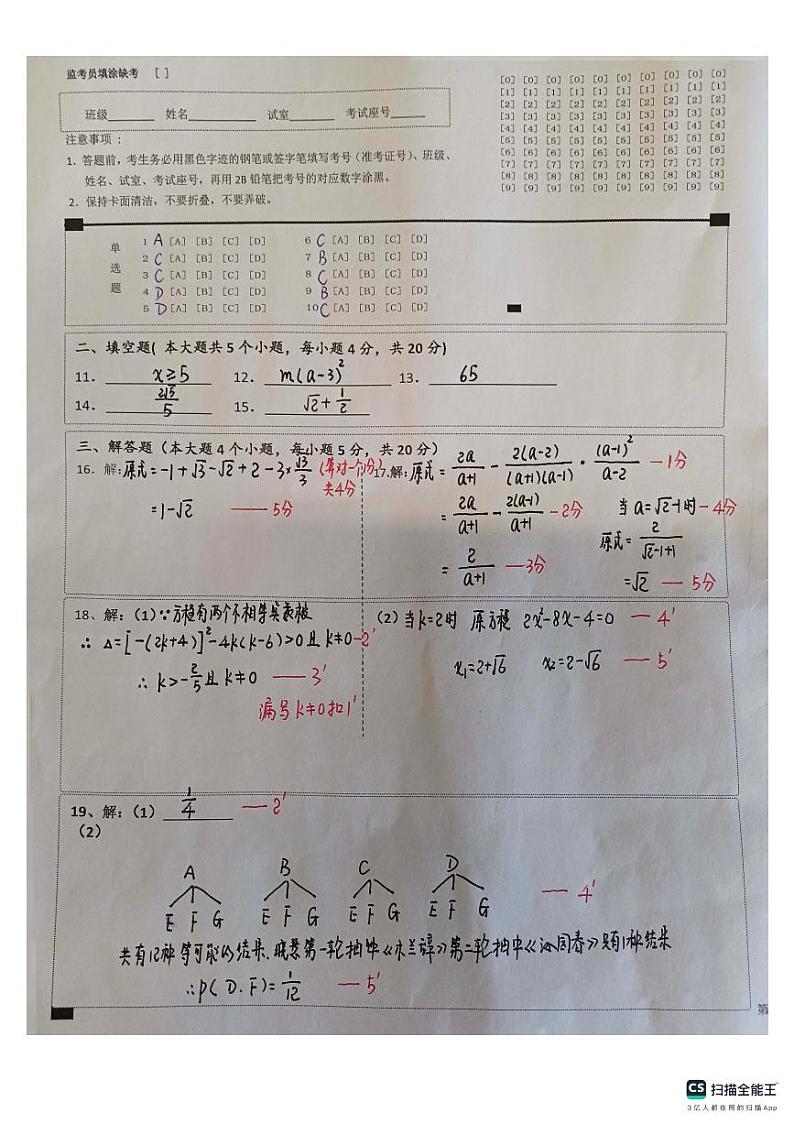 监考员填涂缺考 [ ]
班级______ 姓名__________ 试室______ 考试座号_____
[0] [0] [0] [0] [0] [0] [0] [0] [0] [0]
[1] [1] [1] [1] [1] [1] [1] [1] [1] [1]
[2] [2] [2] [2] [2] [2] [2] [2] [2] [2]
[3] [3] [3] [3] [3] [3] [3] [3] [3] [3]
[4] [4] [4] [4] [4] [4] [4] [4] [4] [4]
[5] [5] [5] [5] [5] [5] [5] [5] [5] [5]
[6] [6] [6] [6] [6] [6] [6] [6] [6] [6]
[7] [7] [7] [7] [7] [7] [7] [7] [7] [7]
[8] [8] [8] [8] [8] [8] [8] [8] [8] [8]
[9] [9] [9] [9] [9] [9] [9] [9] [9] [9]
注意事项：
1. 答题前，考生务必用黑色字迹的钢笔或签字笔填写考号（准考证号）、班级、
姓名、试室、考试座号，再用 2B 铅笔把考号的对应数字涂黑。
2. 保持卡面清洁，不要折叠，不要弄破。
单选题
1 A [A] [B] [C] [D] 6 C [A] [B] [C] [D]
2 C [A] [B] [C] [D] 7 B [A] [B] [C] [D]
3 C [A] [B] [C] [D] 8 C [A] [B] [C] [D]
4 D [A] [B] [C] [D] 9 B [A] [B] [C] [D]
5 D [A] [B] [C] [D] 10 C [A] [B] [C] [D]
二、填空题( 本大题共 5 个小题，每小题 4 分，共 20 分)
11. x≥5 12. m(a-3)² 13. 65
14. 2√5/5 15. √2+1/2
三、解答题（本大题 4 个小题，每小题 5 分，共 20 分）
16. 解: 原式=-1+√3-√2+2-3×√3/3 (算对一个1分) 共4分
=1-√2 ——5分
17.解: 原式=2a/(a+1) - 2(a-2)/((a+1)(a-1)) · (a-1)²/(a-2) —1分
=2a/(a+1) - 2(a-1)/(a+1) —2分
=2/(a+1) —3分
当a=√2-1时 —4分
原式=2/(√2-1+1)
=√2 — 5分
18、解:（1）∵方程有两个不相等实数根
∴ Δ=[-(2k+4)]²-4k(k-6)>0且k≠0 —2'
∴ k>-2/5且k≠0 —— 3'
漏写k≠0扣1'
（2）当k=2时 原方程 2x²-8x-4=0 — 4'
x₁=2+√6 x₂=2-√6 — 5'
19、解:（1） 1/4 —2'
（2）
A B C D
E F G E F G E F G E F G — 4'
共有12种等可能的结果、晓慧第一轮抽中《木兰辞》第二轮抽中《沁园春》只有1种结果
∴P(D.F)=1/12 — 5'
第
CS 扫描全能王
3亿人都在用的扫描App